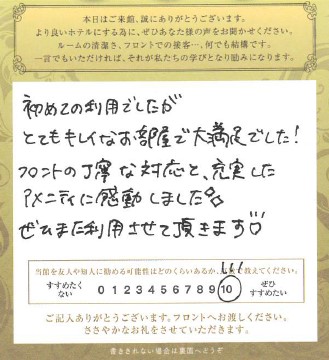 本日はご来館、誠にありがとうございます。
より良いホテルにする為に、ぜひあなた様の声をお聞かせください。
ルームの清潔さ、フロントでの接客…何でも結構です。
一言でもいただければ、それが私たちの学びとなり励みになります。
初めての利用でしたが
とてもキレイなお部屋で大満足でした!
フロントの丁寧な対応と、充実した
アメニティに感動しました
ぜひまた利用させて頂きます
当館を友人や知人に勧める可能性はどのくらいあるか、で教えてください。
すすめたくない 0 1 2 3 4 5 6 7 8 9 10 ぜひすすめたい
ご記入ありがとうございます。フロントへお渡しください。
ささやかなお礼をさせていただきます。
書ききれない場合は裏面へどうぞ